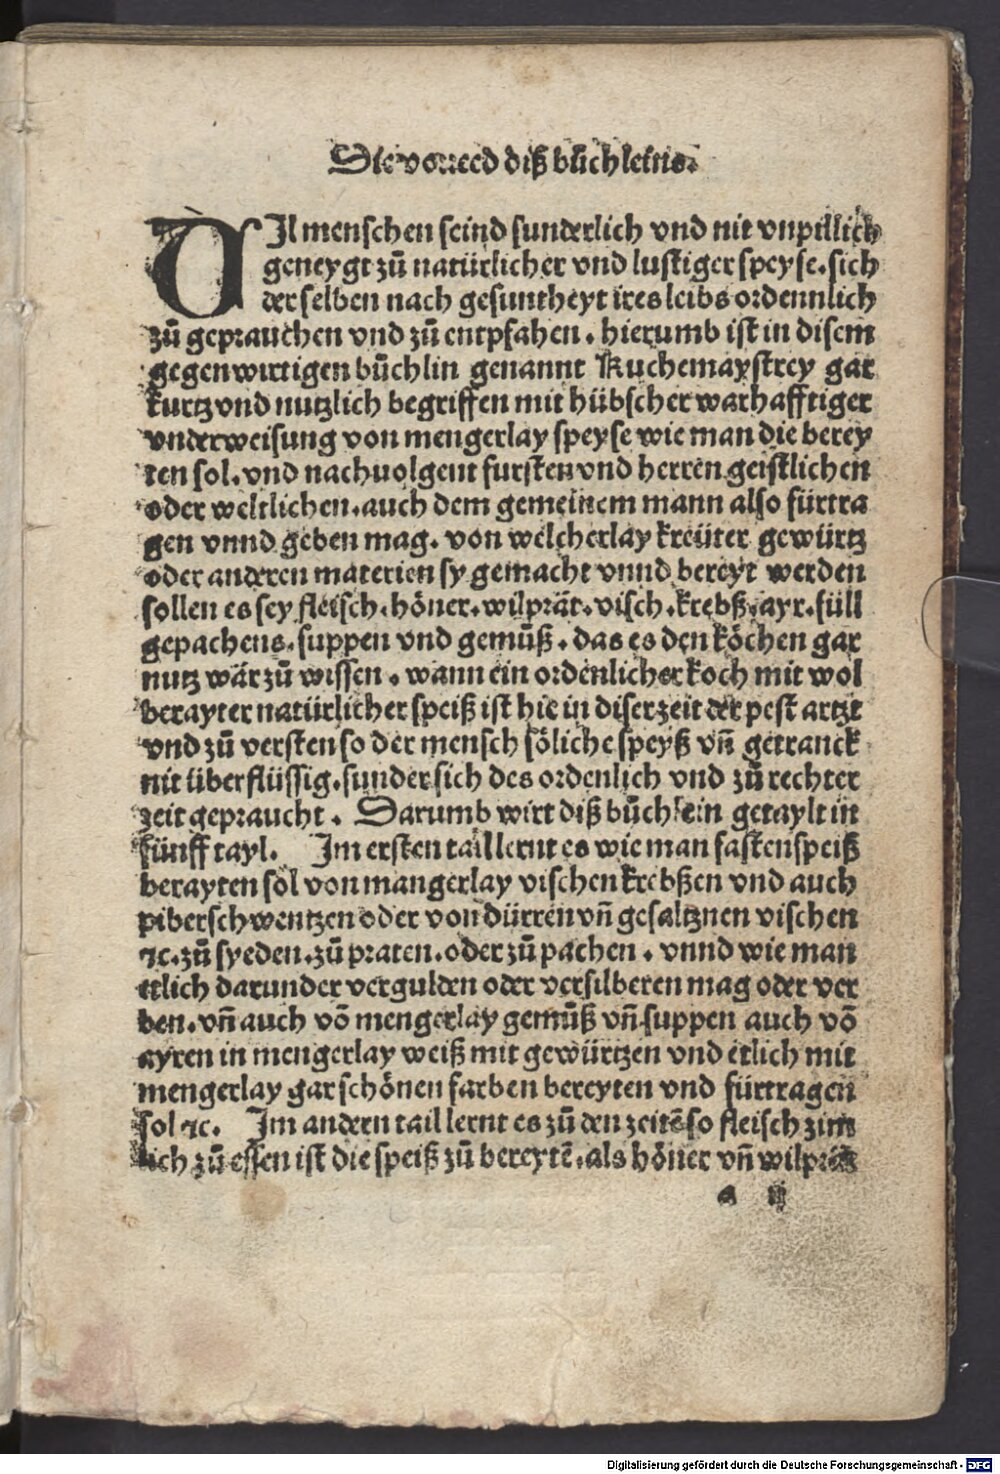 Die vorred diß bůchleins.
VIl menschen seind sunderlich vnd nit vnpillich
geneygt zů natürlicher vnd lustiger speyse. sich
der selben nach gesuntheyt ires leibs ordennlich
zů geprauchen vnd zů entpfahen. hierumb ist in disem
gegenwirtigen bůchlin genannt Kuchemaystrey gar
kurtz vnd nutzlich begriffen mit hübscher warhafftiger
vnderweisung von mengerlay speyse wie man die berey
ten sol. vnd nachuolgent fursten vnd herren geistlichen
oder weltlichen. auch dem gemeinem mann also fürtra
gen vnnd geben mag. von welcherlay kreüter gewürtz
oder anderen materien sy gemacht vnnd bereyt werden
sollen es sey fleisch. höner. wilprät. visch. krebß. ayr. füll
gepachens. suppen vnd gemůß. das es den köchen gar
nutz wär zů wissen. wann ein ordenlicher koch mit wol
berayter natürlicher speiß ist hie in diser zeit der pest artzt
vnd zů versten so der mensch söliche speyß vñ getranck
nit überflüssig. sunder sich des ordenlich vnd zů rechter
zeit gepraucht. Darumb wirt diß bůchlein getaylt in
fünff tayl. Im ersten tail lernt es wie man fastenspeiß
berayten sol von mangerlay vischen krebßen vnd auch
piberschwentzen oder von dürren vñ gesaltznen vischen
⁊c. zů syeden. zů praten. oder zů pachen. vnnd wie man
etlich darunder vergulden oder versilberen mag oder ver
ben. vñ auch võ mengerlay gemůß vñ suppen auch võ
ayren in mengerlay weiß mit gewürtzen vnd etlich mit
mengerlay gar schönen farben bereyten vnd fürtragen
sol ⁊c. Im andern tail lernt es zů den zeitẽ so fleisch zim
lich zů essen ist die speiß zů bereytẽ. als höner vñ wilprät
a ij
Digitalisierung gefördert durch die Deutsche Forschungsgemeinschaft - DFG